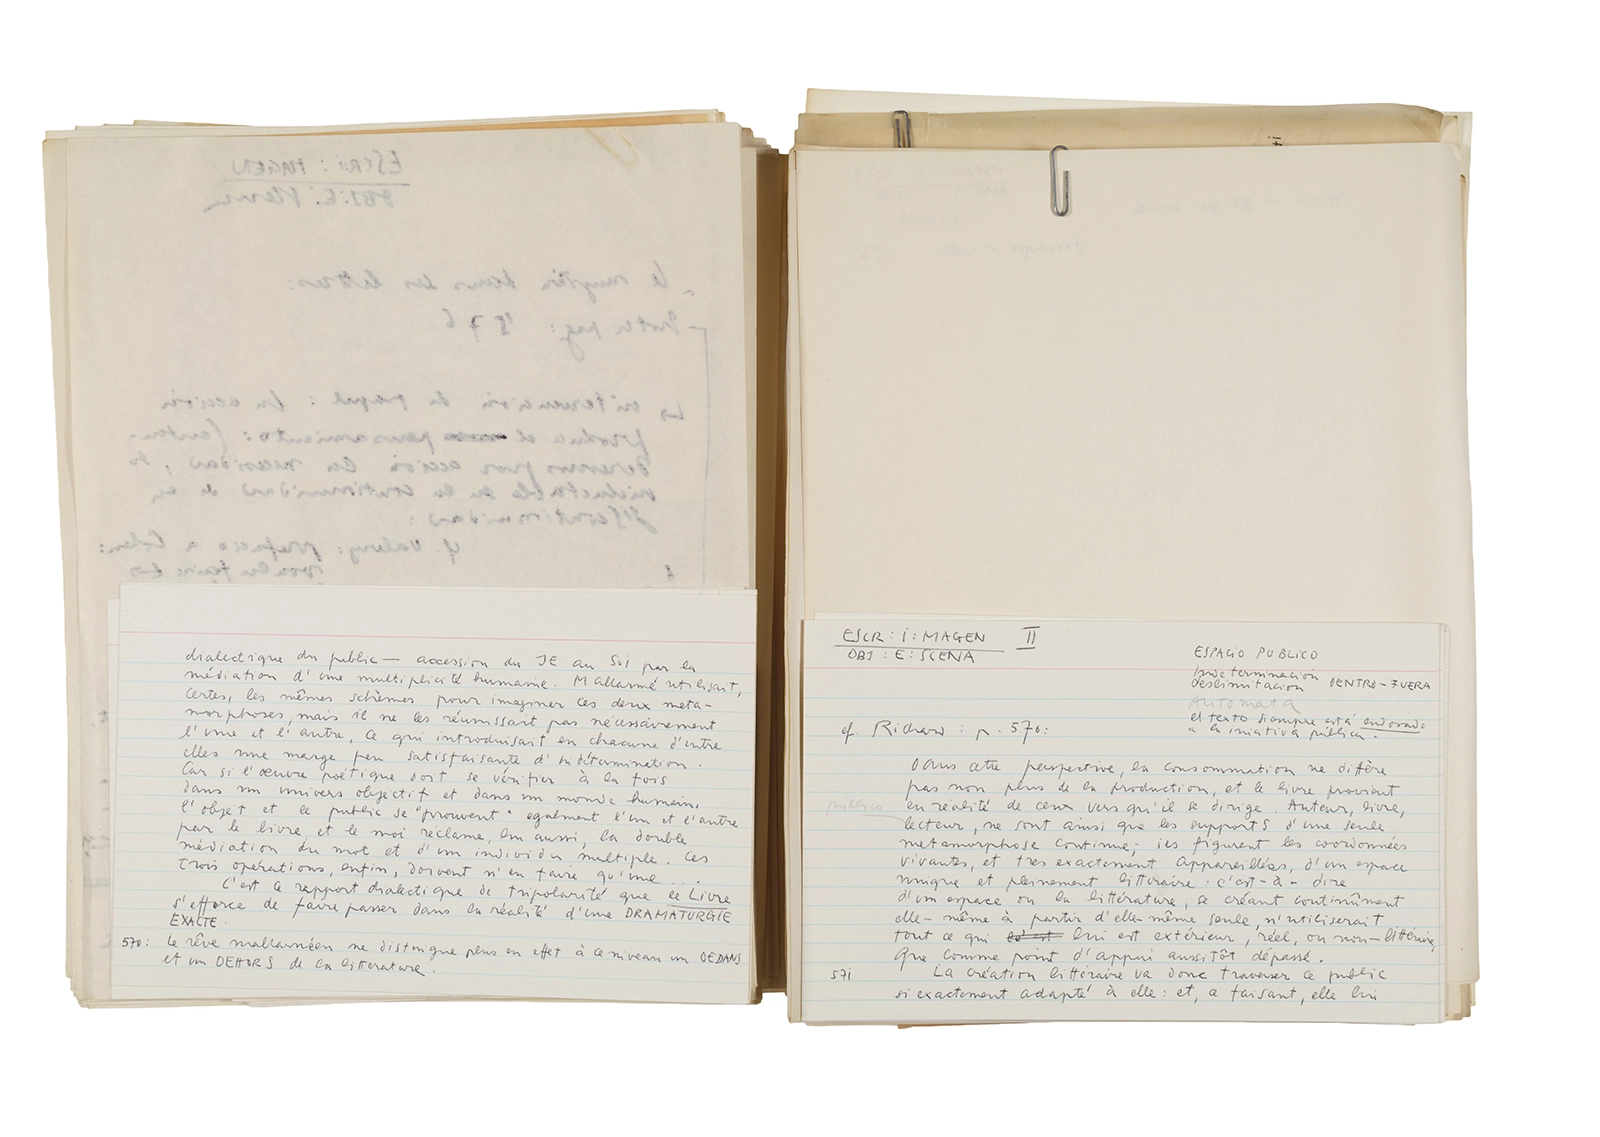 ESCRI: MAGEN
OBJ: E:
Le mystère dans les lettres:
pag: 1576
intervención de: la acción
produce el pensamiento:
por acción la necesidad,
de la continuidad
discontinuidad:
cf. Valery: prefacio a Cohen:
dialectique du public — accession du JE au Soi par la
médiation d'une multiplicité humaine. Mallarmé utilisait,
certes, les mêmes schèmes pour imaginer ces deux meta-
morphoses, mais il ne les réunissait pas nécessairement
l'une et l'autre, ce qui introduisait en chacune d'entre
elles une marge peu satisfaisante d'indétermination.
Car si l'œuvre poétique doit se vérifier à la fois
dans un univers objectif et dans un monde humain,
l'objet et le public se "prouvent" egalement l'un et l'autre
par le livre, et le moi réclame, lui aussi, la double
médiation du mot et d'un individu multiple. Ces
trois operations, enfin, doivent n'en faire qu'une...
C'est ce rapport dialectique de tripolarité que le Livre
s'efforce de faire passer dans la réalité d'une DRAMATURGIE
EXACTE.
570: Le rêve mallarméen ne distingue plus en effet à ce niveau un DEDANS
et un DEHORS de la litterature.
ESCR: I: MAGEN II
OBJ: E: SCENA
ESPACIO PUBLICO
Indeterminacion
deslimitacion DENTRO-FUERA
Automata
el texto siempre está
a la iniciativa pública.
cf. Richard: p. 570:
Dans cette perspective, la consommation ne diffère
pas non plus de la production, et le livre provient
público
en réalité de ceux vers qu'il se dirige. Auteur, livre,
lecteur, ne sont ainsi que les supports d'une seule
metamorphose continue; ils figurent les coordonnées
vivantes, et tres exactement appareillées, d'un espace
unique et pleinement litteraire: c'est-à-dire
d'un espace ou la littérature, se créant continûment
elle-même à partir d'elle-même seule, n'utiliserait
tout ce qui lui est extérieur, réel, ou non-littéraire,
que comme point d'appui aussitôt dépassé.
571 La création littéraire va donc traverser ce public
si exactement adapté à elle: et, ce faisant, elle lui